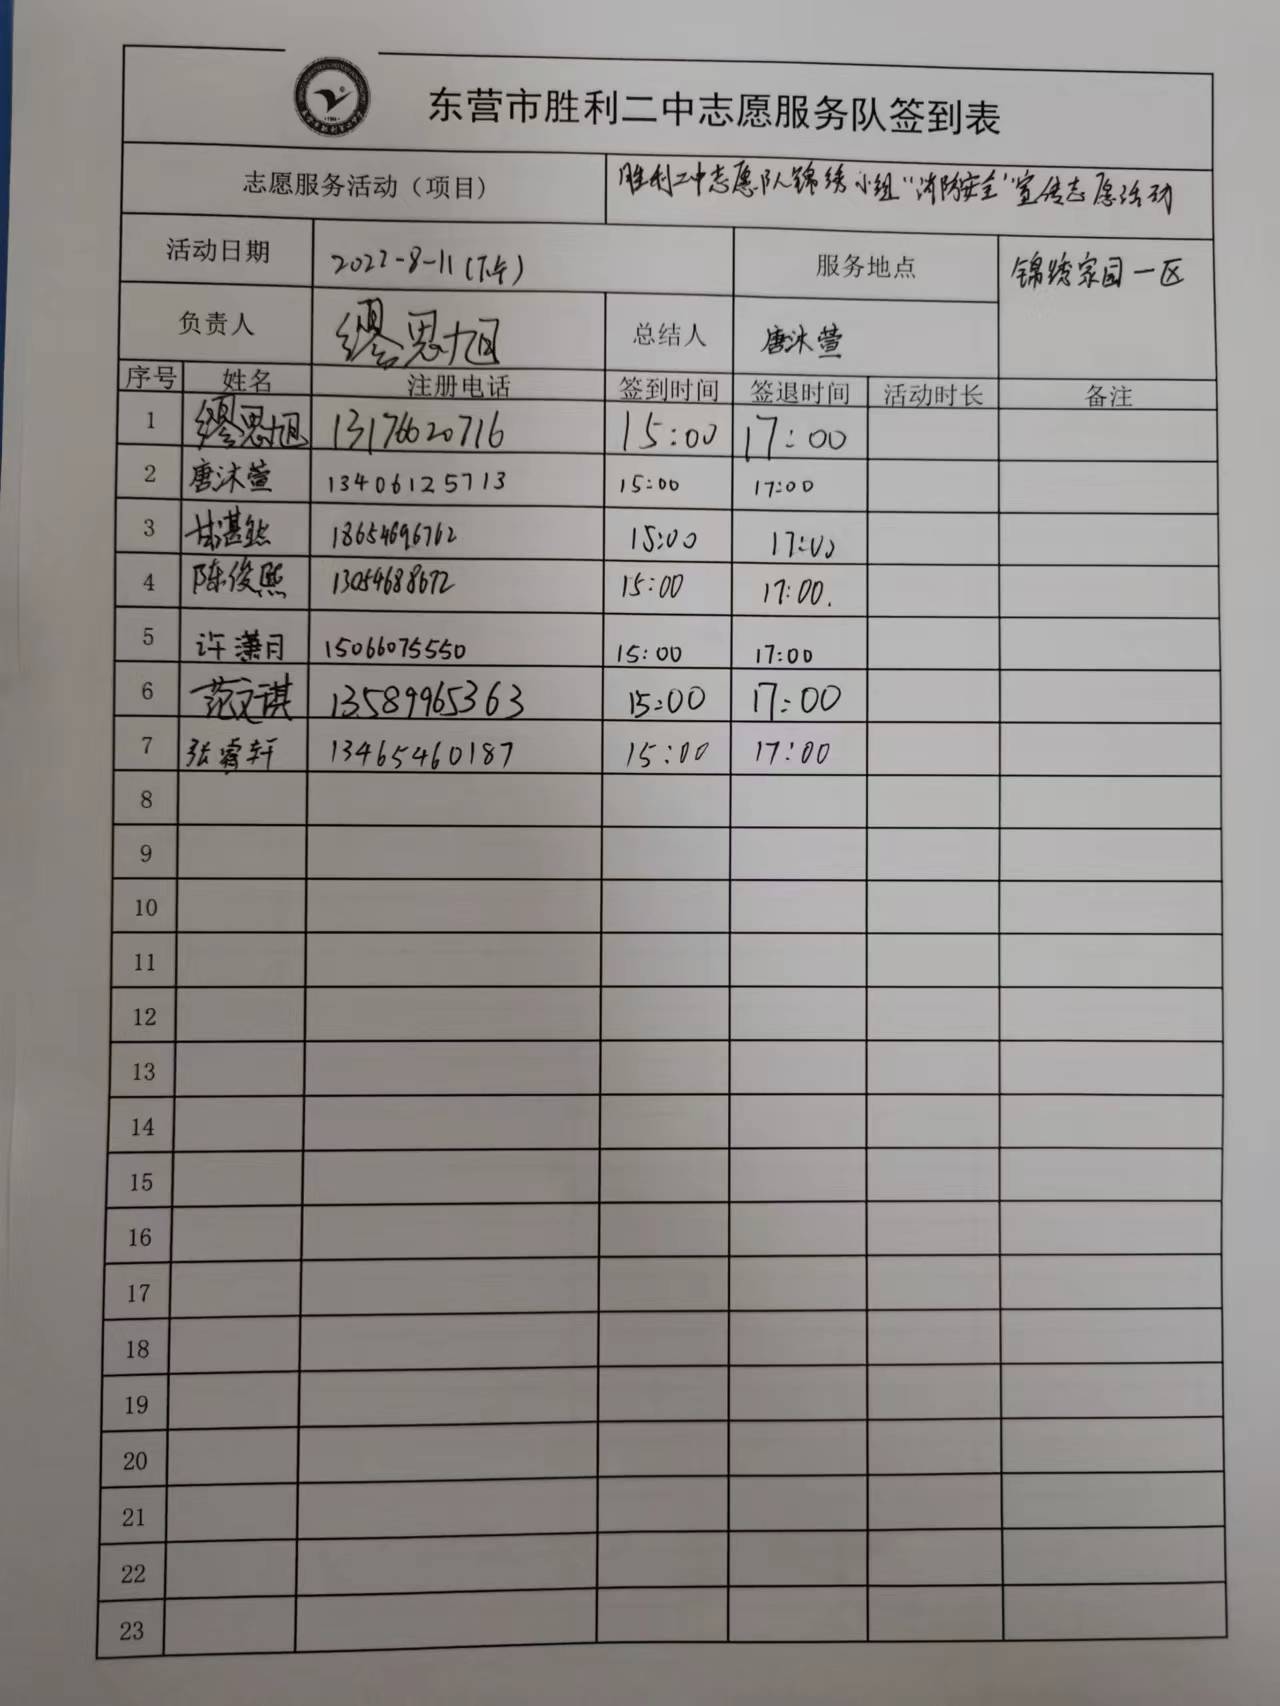 东营市胜利二中志愿服务队签到表
志愿服务活动（项目） 胜利二中志愿队锦绣小组“消防安全”宣传志愿活动
活动日期 2022-8-11(下午) 服务地点 锦绣家园一区
负责人 缪思旭 总结人 唐沐萱
序号 姓名 注册电话 签到时间 签退时间 活动时长 备注
1 缪思旭 13176620716 15:00 17:00
2 唐沐萱 13406125713 15:00 17:00
3 18654696762 15:00 17:00
4 陈俊熙 13054688672 15:00 17:00.
5 许潇月 15066075550 15:00 17:00
6 范文琪 13589965363 15:00 17:00
7 张睿轩 13465460187 15:00 17:00
8
9
10
11
12
13
14
15
16
17
18
19
20
21
22
23